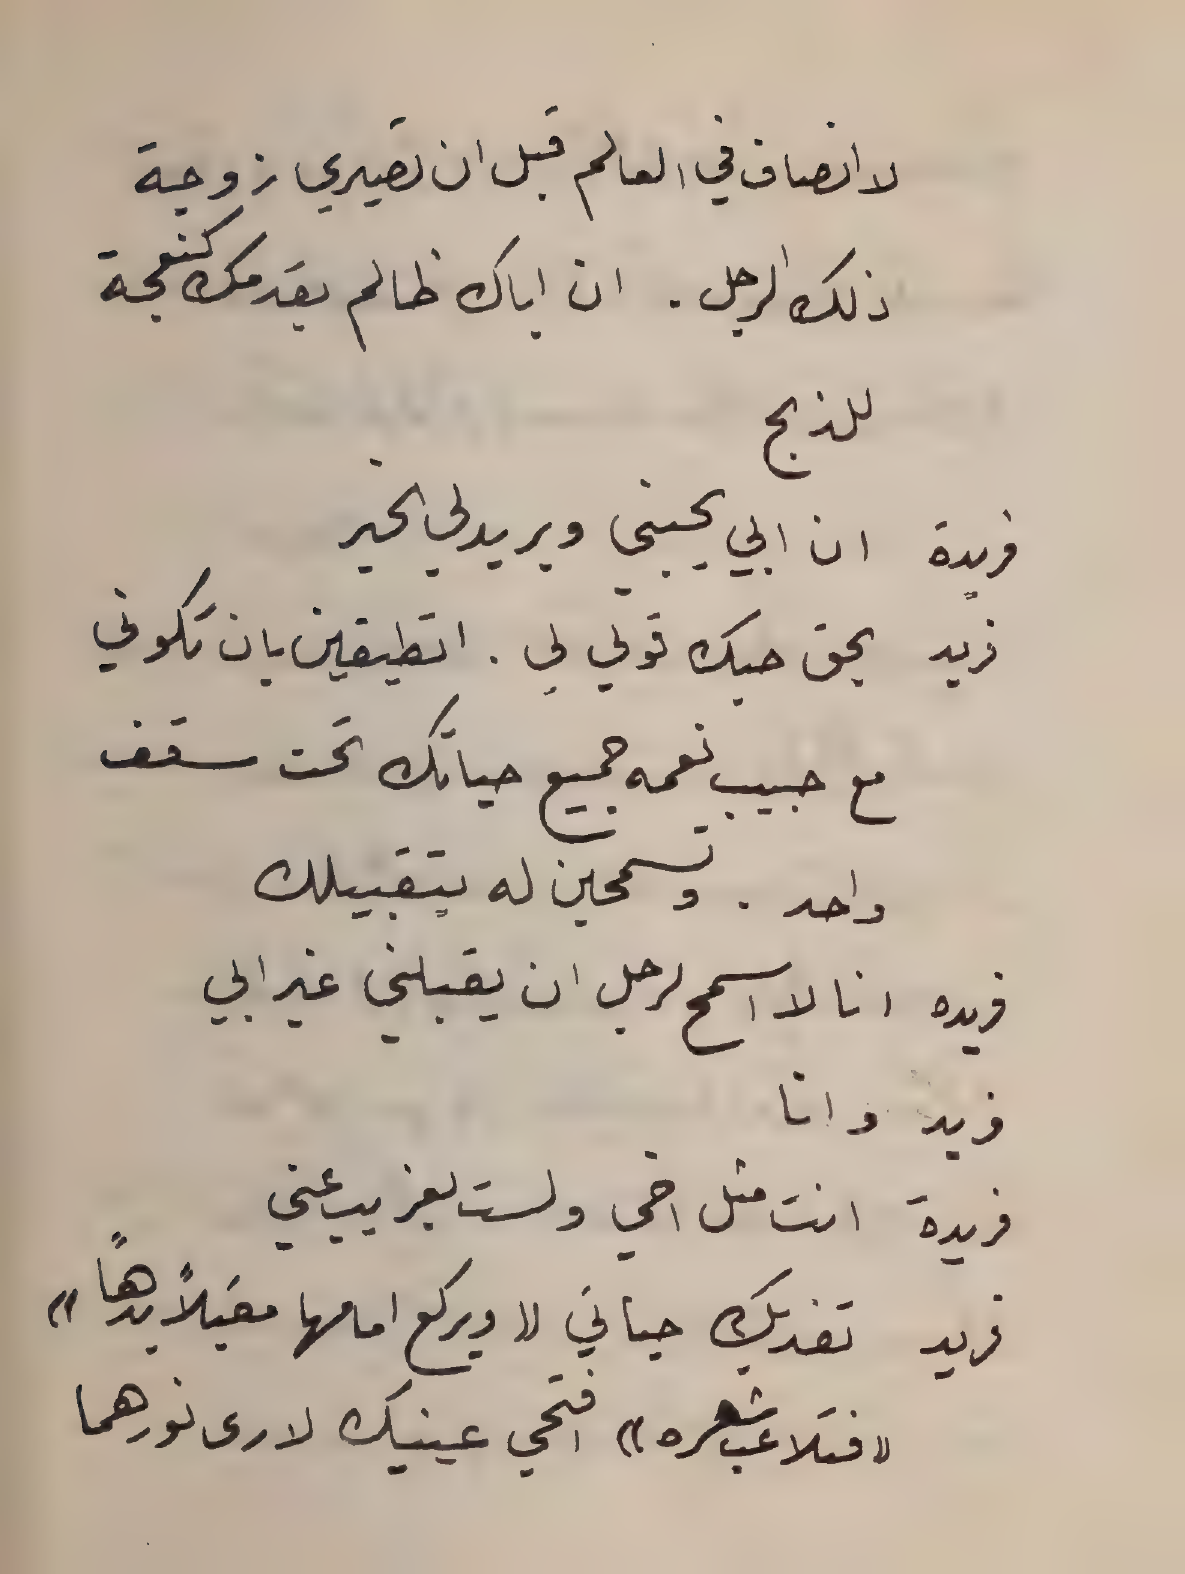 لا انصاف في العالم قبل ان تصيري زوجة
ذلك الرجل . ان اباك ظالم يقدمك كنعجة
للذبح
فريدة ان ابي يحبني ويريد لي الخير
فريد بحق حبك قولي لي . اتطيقين بان تكوني
مع حبيب نعمه جميع حياتك تحت سقف
واحد . وتسمحين له بتقبيلك
فريده انا لا اسمح لرجل ان يقبلني غير ابي
فريد وانا
فريدة انت مثل اخي ولست بغريب عني
فريد تفديك حياتي «ويركع امامها مقبلاً يدها»
«فتلاعب شعره» افتحي عينيك لارى نورهما